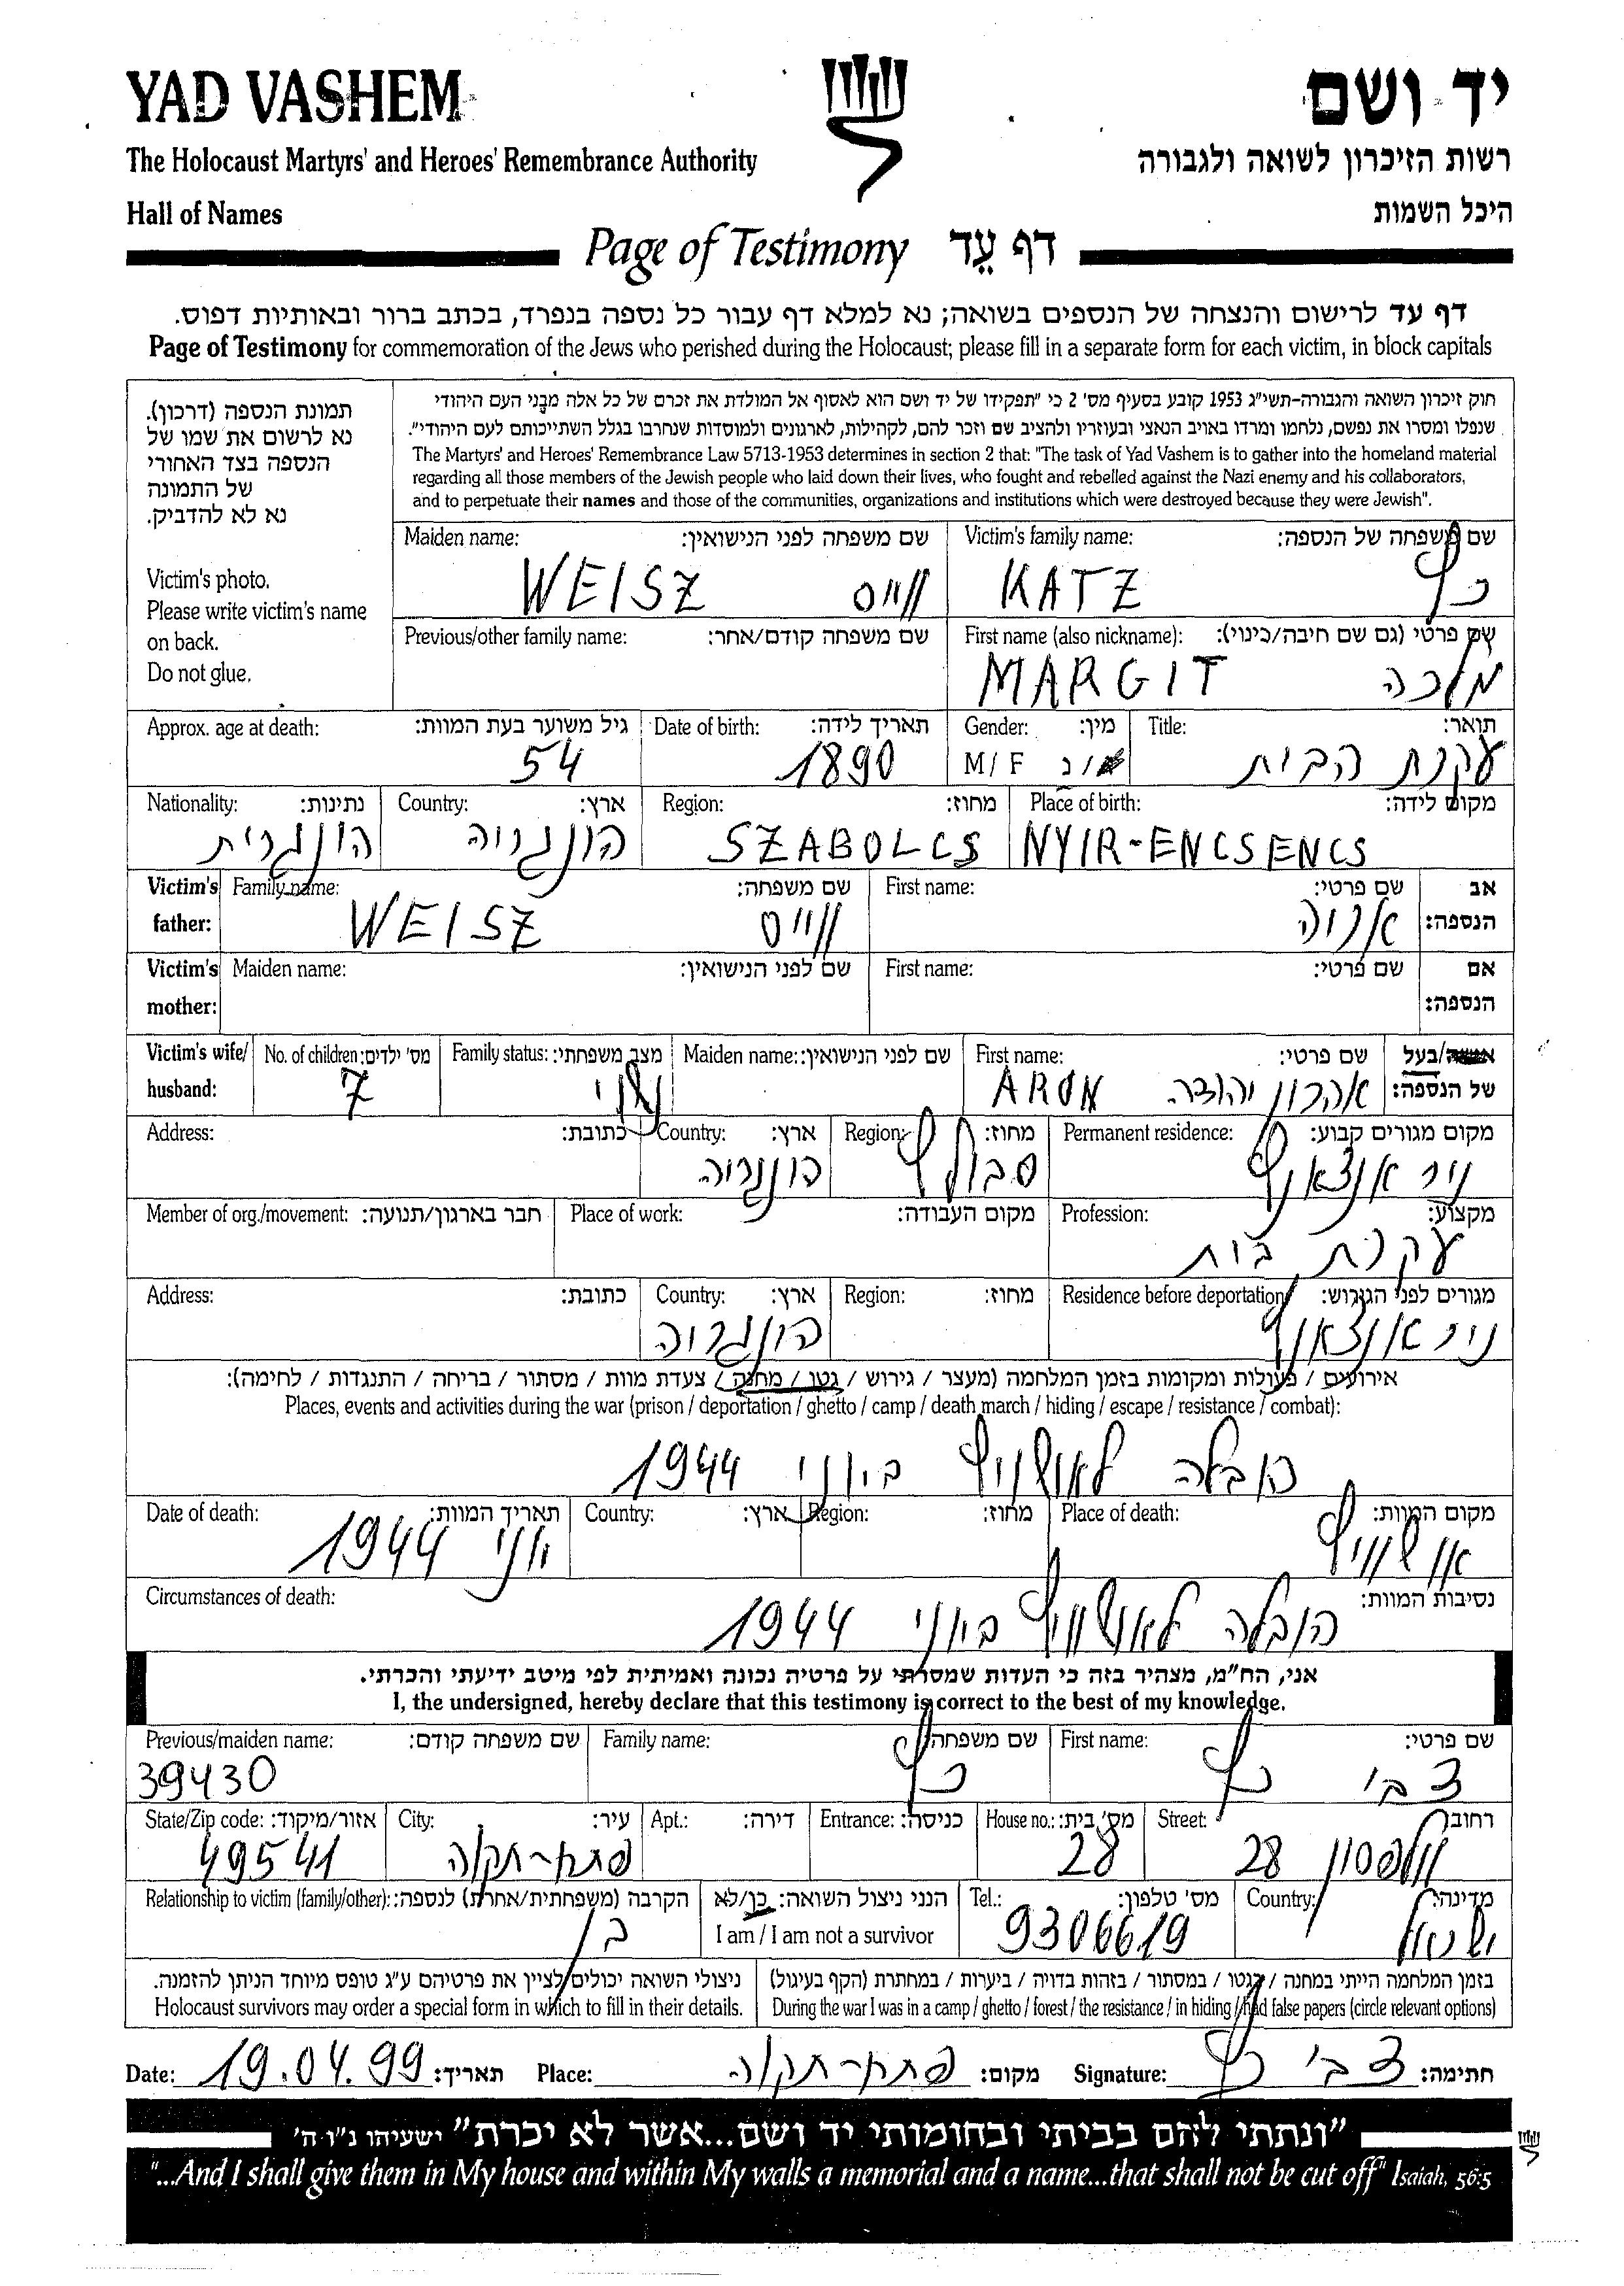 YAD VASHEM יד ושם
The Holocaust Martyrs' and Heroes' Remembrance Authority רשות הזיכרון לשואה ולגבורה
Hall of Names היכל השמות
Page of Testimony דף עֵד
דף עד לרישום והנצחה של הנספים בשואה; נא למלא דף עבור כל נספה בנפרד, בכתב ברור ובאותיות דפוס.
Page of Testimony for commemoration of the Jews who perished during the Holocaust; please fill in a separate form for each victim, in block capitals
תמונת הנספה (דרכון).
נא לרשום את שמו של
הנספה בצד האחורי
של התמונה
נא לא להדביק.
Victim's photo.
Please write victim's name
on back.
Do not glue.
חוק זיכרון השואה והגבורה-תשי"ג 1953 קובע בסעיף מס' 2 כי "תפקידו של יד ושם הוא לאסוף אל המולדת את זכרם של כל אלה מבני העם היהודי
שנפלו ומסרו את נפשם, נלחמו ומרדו באויב הנאצי ובעוזריו ולהציב שם וזכר להם, לקהילות, לארגונים ולמוסדות שנחרבו בגלל השתייכותם לעם היהודי".
The Martyrs' and Heroes' Remembrance Law 5713-1953 determines in section 2 that: "The task of Yad Vashem is to gather into the homeland material
regarding all those members of the Jewish people who laid down their lives, who fought and rebelled against the Nazi enemy and his collaborators,
and to perpetuate their names and those of the communities, organizations and institutions which were destroyed because they were Jewish".
Maiden name: שם משפחה לפני הנישואין: Victim's family name: שם משפחה של הנספה:
WEISZ ווייס KATZ כץ
Previous/other family name: שם משפחה קודם/אחר: First name (also nickname): שם פרטי (גם שם חיבה/כינוי):
MARGIT מלכה
Approx. age at death: גיל משוער בעת המוות: Date of birth: תאריך לידה: Gender: מין: Title: תואר:
54 1890 M / F נ עקרת הבית
Nationality: נתינות: Country: ארץ: Region: מחוז: Place of birth: מקום לידה:
הונגרית הונגריה SZABOLCS NYIR-ENCSENCS
Victim's father: Family name: שם משפחה: First name: שם פרטי: אב הנספה:
WEISZ ווייס אריה
Victim's mother: Maiden name: שם לפני הנישואין: First name: שם פרטי: אם הנספה:
Victim's wife/ husband: No. of children: מס' ילדים: Family status: מצב משפחתי: Maiden name: שם לפני הנישואין: First name: שם פרטי: אשה/בעל של הנספה:
7 נשוי ARON אהרון יהודה
Address: כתובת: Country: ארץ: Region: מחוז: Permanent residence: מקום מגורים קבוע:
הונגריה סבולץ ניר אנצאנץ
Member of org./movement: חבר בארגון/תנועה: Place of work: מקום העבודה: Profession: מקצוע:
עקרת בית
Address: כתובת: Country: ארץ: Region: מחוז: Residence before deportation: מגורים לפני הגירוש:
הונגריה ניר אנצאנץ
אירועים / פעולות ומקומות בזמן המלחמה (מעצר / גירוש / גטו / מחנה / צעדת מוות / מסתור / בריחה / התנגדות / לחימה):
Places, events and activities during the war (prison / deportation / ghetto / camp / death march / hiding / escape / resistance / combat):
הובלה לאושוויץ ביוני 1944
Date of death: תאריך המוות: Country: ארץ: Region: מחוז: Place of death: מקום המוות:
יוני 1944 אושוויץ
Circumstances of death: נסיבות המוות:
הובלה לאושוויץ ביוני 1944
אני, הח"מ, מצהיר בזה כי העדות שמסרתי על פרטיה נכונה ואמיתית לפי מיטב ידיעתי והכרתי.
I, the undersigned, hereby declare that this testimony is correct to the best of my knowledge.
Previous/maiden name: שם משפחה קודם: Family name: שם משפחה: First name: שם פרטי:
39430 כץ צבי כץ
State/Zip code: אזור/מיקוד: City: עיר: Apt.: דירה: Entrance: כניסה: House no.: מס' בית: Street: רחוב:
49541 פתח-תקוה 28 וולפסון 28
Relationship to victim (family/other): הקרבה (משפחתית/אחרת) לנספה: הנני ניצול השואה: כן/לא Tel.: מס' טלפון: Country: מדינה:
בן I am / I am not a survivor 9306619 ישראל
ניצולי השואה יכולים לציין את פרטיהם ע"ג טופס מיוחד הניתן להזמנה. בזמן המלחמה הייתי במחנה / בגטו / במסתור / בזהות בדויה / ביערות / במחתרת (הקף בעיגול)
Holocaust survivors may order a special form in which to fill in their details. During the war I was in a camp / ghetto / forest / the resistance / in hiding / had false papers (circle relevant options)
Date: 19.04.99 תאריך: Place: פתח-תקוה מקום: Signature: צבי כץ חתימה:
"ונתתי להם בביתי ובחומותי יד ושם...אשר לא יכרת" ישעיהו נ"ו ה'
"...And I shall give them in My house and within My walls a memorial and a name...that shall not be cut off" Isaiah, 56:5